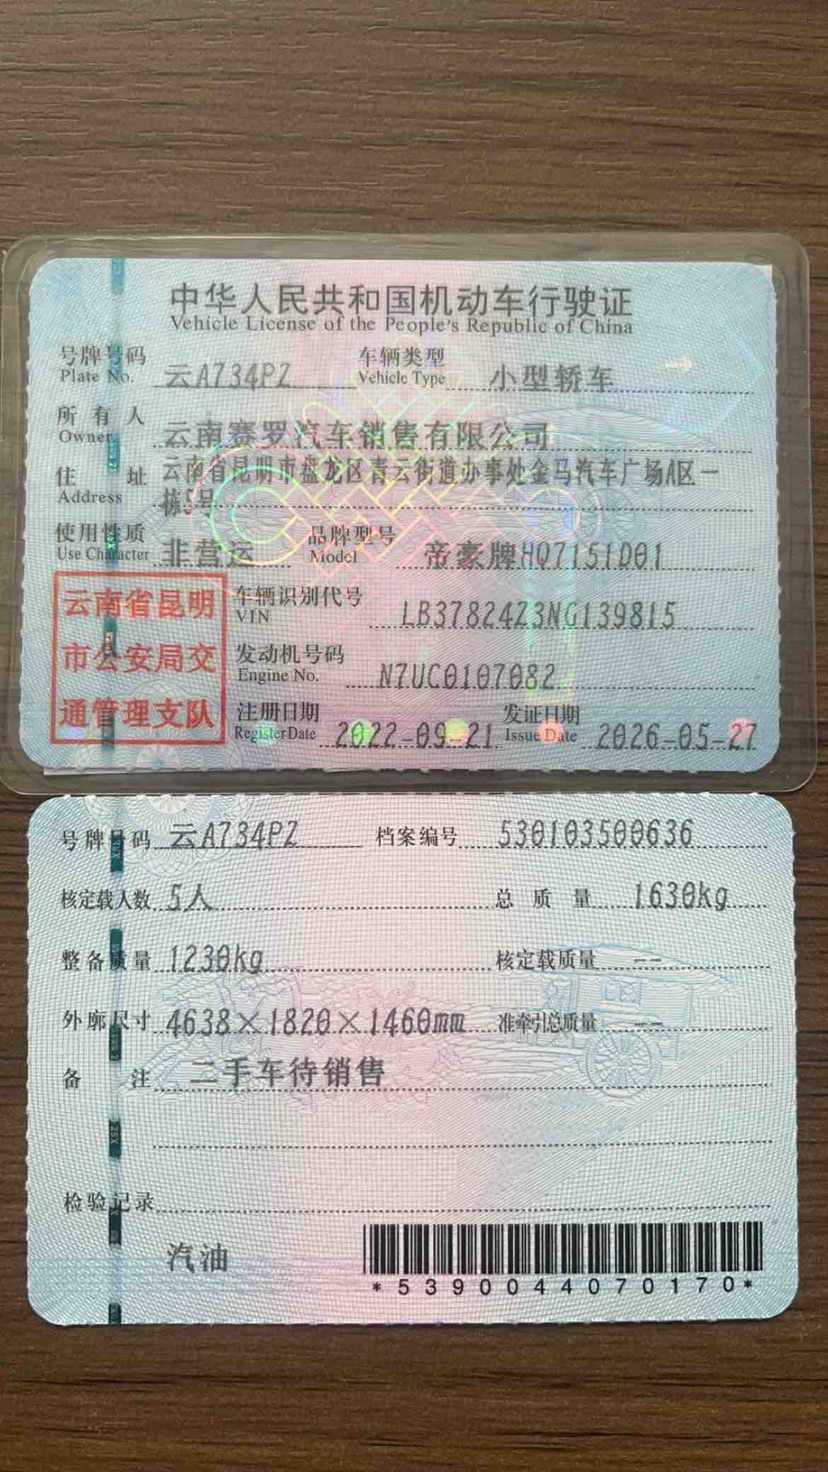 中华人民共和国机动车行驶证
Vehicle License of the People's Republic of China
号牌号码 Plate No. 云A734PZ 车辆类型 Vehicle Type 小型轿车
所有人 Owner 云南赛罗汽车销售有限公司
住址 Address 云南省昆明市盘龙区青云街道办事处金马汽车广场A区一
栋5号
使用性质 Use Character 非营运 品牌型号 Model 帝豪牌HQ7151D01
云南省昆明
市公安局交
通管理支队
车辆识别代号 VIN LB37824Z3NG139815
发动机号码 Engine No. N7UC0107082
注册日期 Register Date 2022-09-21 发证日期 Issue Date 2026-05-27
号牌号码 云A734PZ 档案编号 530103500636
核定载人数 5人 总质量 1630kg
整备质量 1230kg 核定载质量 --
外廓尺寸 4638×1820×1460mm 准牵引总质量 --
备注 二手车待销售
检验记录
汽油
*5390044070170*